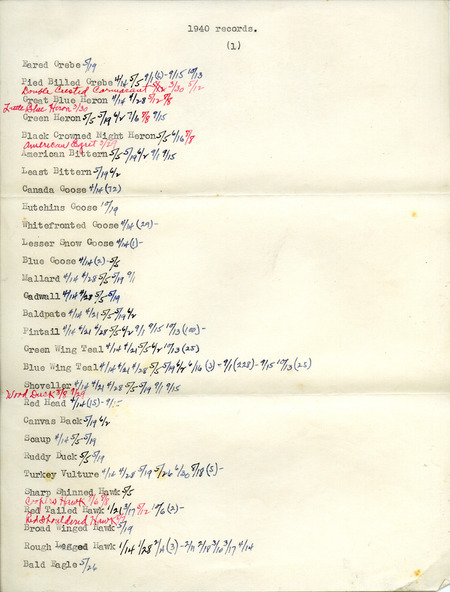 1940 records.
(1)
Eared Grebe 5/19
Pied Billed Grebe 4/14 5/5 9/1(6)- 9/15 10/13
Double Crested Cormorant 3/30 5/12
Great Blue Heron 4/14 4/28 5/12 7/8
Little Blue Heron 3/30
Green Heron 5/5 5/19 6/2 7/6 7/8 9/15
Black Crowned Night Heron 5/5 6/16 7/8
American Egret 3/29
American Bittern 5/5 5/19 6/2 9/1 9/15
Least Bittern 5/19 6/2
Canada Goose 4/14 (72)
Hutchins Goose 10/19
Whitefronted Goose 4/14 (29)-
Lesser Snow Goose 4/14 (1)-
Blue Goose 4/14 (2)-5/5
Mallard 4/14 4/28 5/5 5/19 9/1
Gadwall 4/14 4/28 5/5-5/19
Baldpate 4/14 4/21 5/5-5/19 6/2
Pintail 4/14 4/21 4/28 5/5-6/2 9/1 9/15 10/13 (100)-
Green Wing Teal 4/14 4/21 5/5-6/2 10/13 (25)
Blue Wing Teal 4/14 4/21 4/28 5/5-5/19 6/2 6/16 (3)-9/1 (228)-9/15 10/13 (25)
Shoveller 4/14 4/21 4/28 5/5-5/19 9/1 9/15
Wood Duck 3/8 9/29
Red Head 4/14 (15)-
Canvas Back 5/19 6/2
Scaup 4/14 5/5-5/19
Ruddy Duck 5/5-5/19
Turkey Vulture 4/14 4/28 5/19 5/26 6/30 8/18 (5)-
Sharp Shinned Hawk 5/5
Coopers Hawk 7/6 7/8
Red Tailed Hawk 1/21 3/17 5/12 10/6 (2)-
Red Shouldered Hawk
Broad Winged Hawk 5/19
Rough Legged Hawk 1/14 1/28 2/4 (3)-2/11 2/18 3/10 3/17 4/14
Bald Eagle 5/26